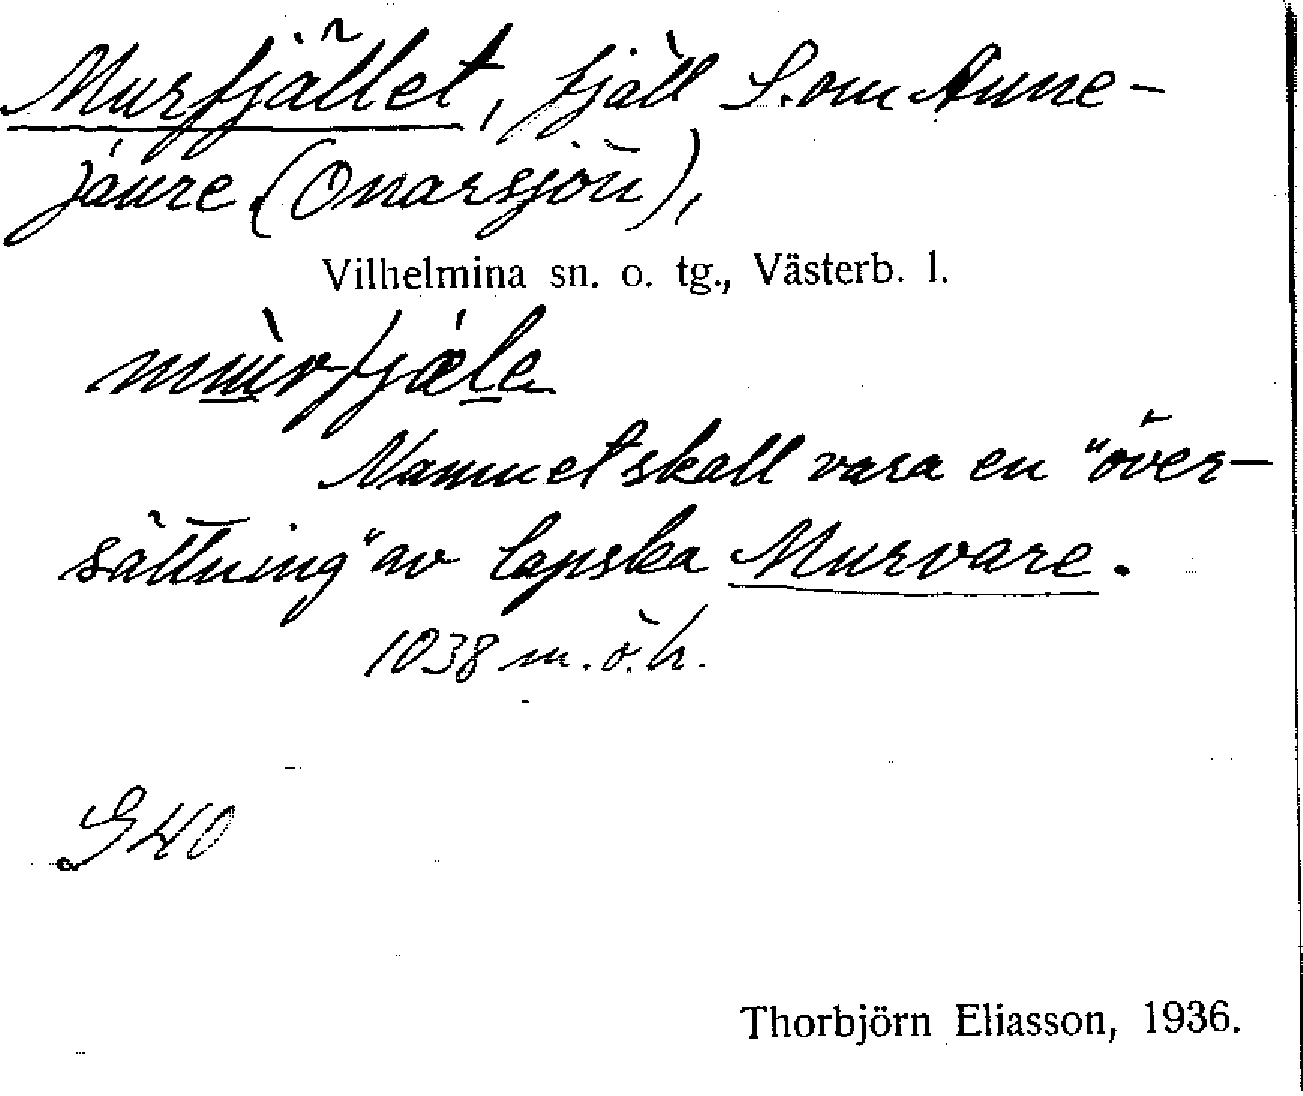 Murfjället, fjäll S.om Aune-
jaure (Onarsjön),
Vilhelmina sn. o. tg., Västerb. l.
mùrfjǽle
Namnet skall vara en "över-
sättning" av lapska Murvare.
1038 m.ö.h.
S40
Thorbjörn Eliasson, 1936.